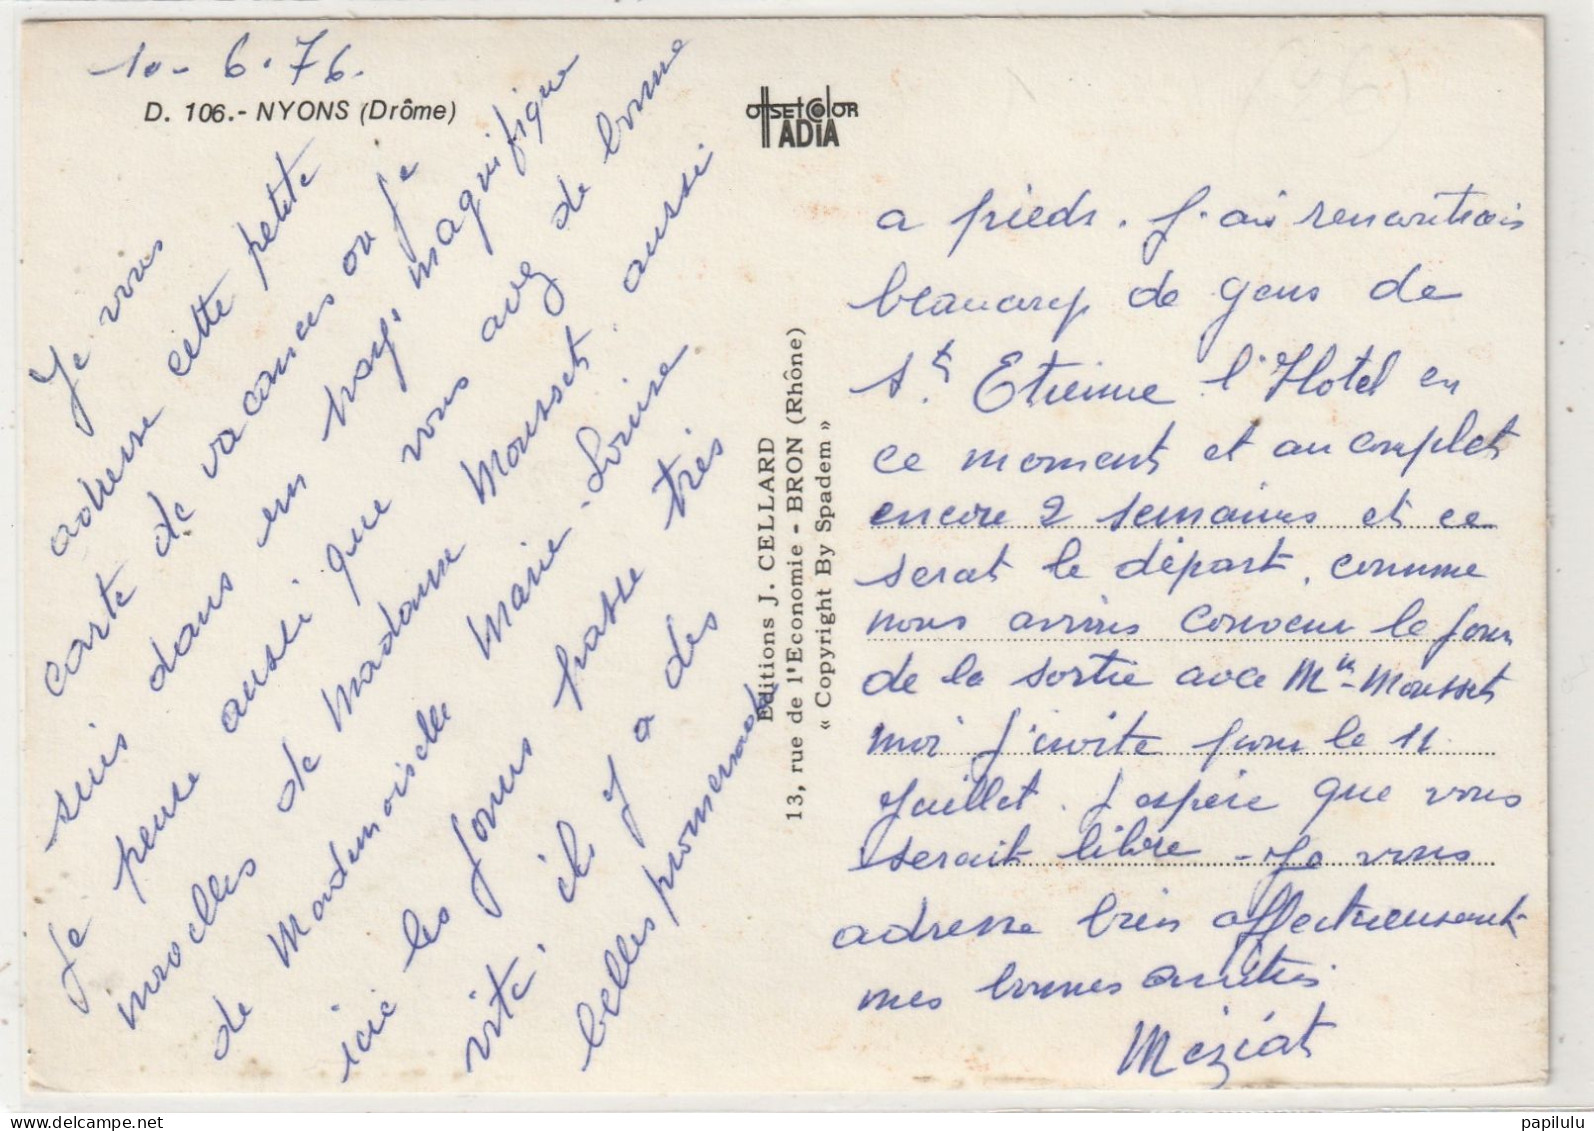 10-6.76.
D. 106.- NYONS (Drôme)
Je vous
adresse cette petite
carte de vacances ou je
suis dans en pays magnifique
Je pense aussi que vous avez de bonne
nvoelles de Madame Mousset, aussi
de Mademoiselle Marie-Louise
ici les jours passe très
vite, il y a des
belles promenade
OffSET COLOR
ADIA
Editions J. CELLARD
13, rue de l'Economie - BRON (Rhône)
« Copyright By Spadem »
a pieds. J. ai rencontrais
beaucoup de gens de
St. Etienne l'Hotel en
ce moment et au complet
encore 2 semaines et ce
serat le départ, comme
nous avions convenu le jour
de la sortie avec Mlle Mousset
moi j'invite pour le 11
Juillet. J espére que vous
serait libre - Je vous
adresse bien affectueusement
mes bonnes amitiés
Meziat
delcampe.net
papilulu